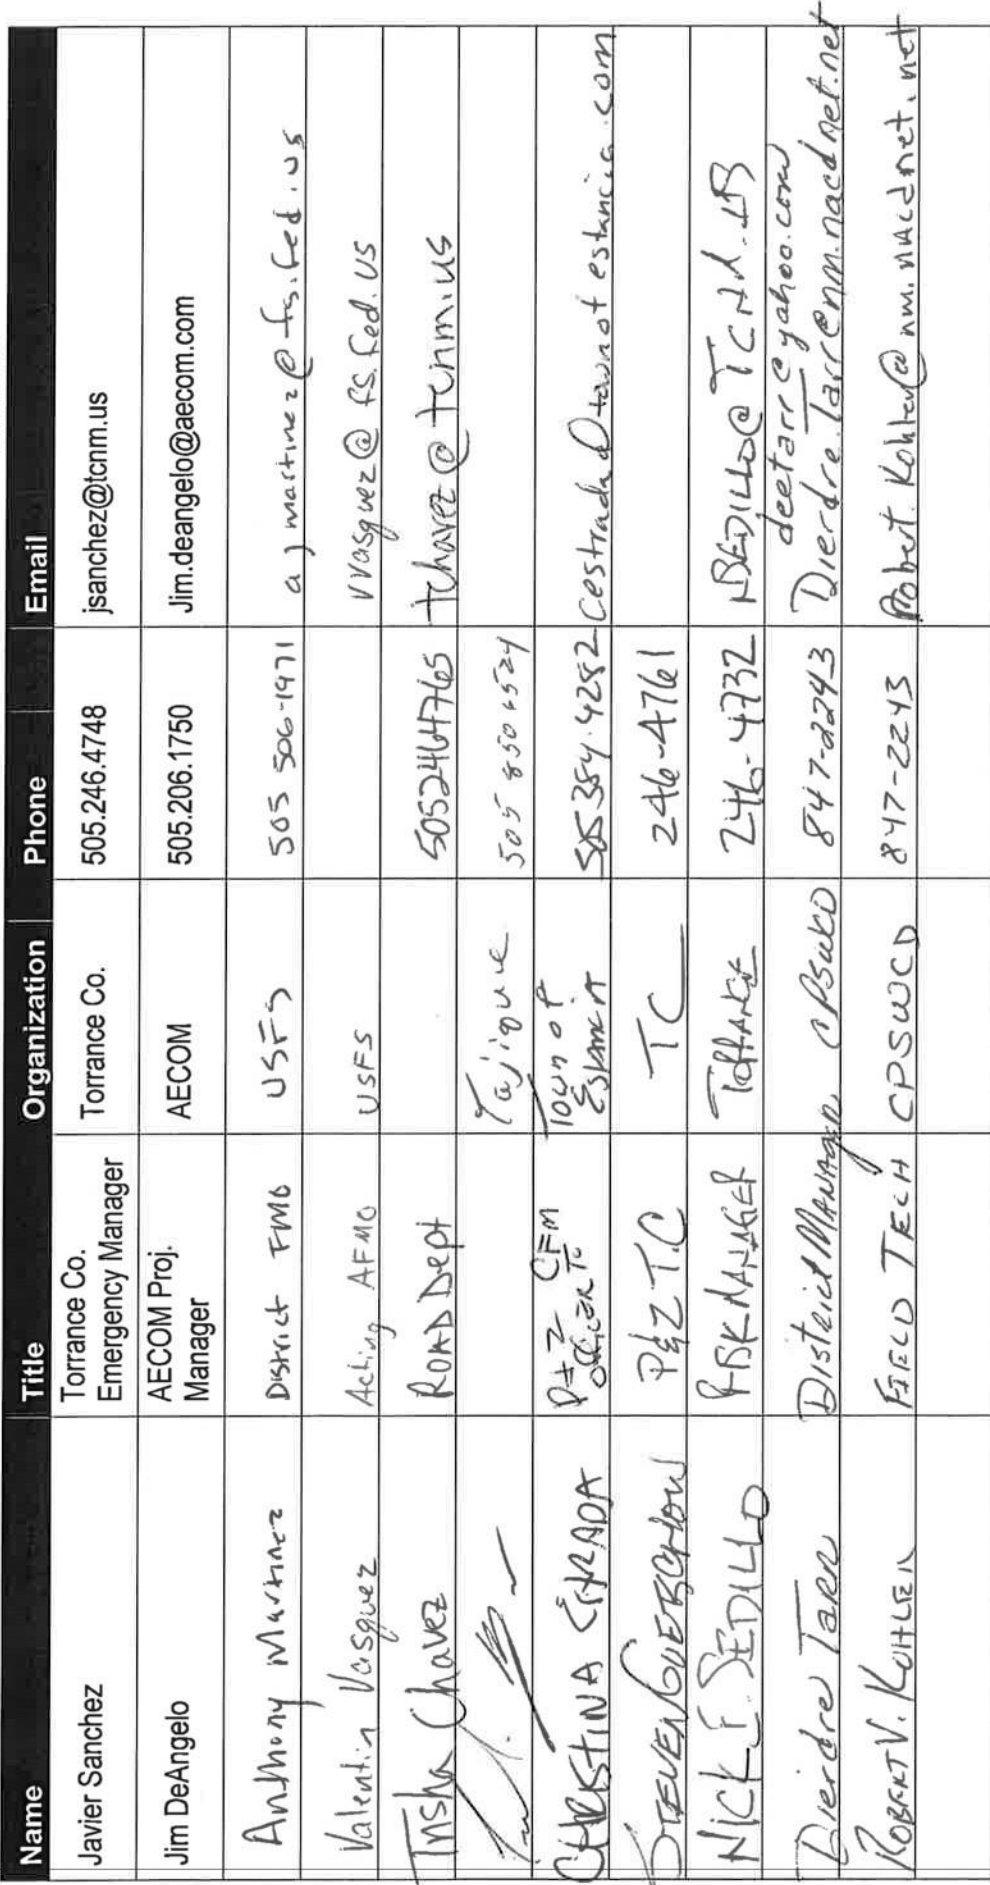 Name Title Organization Phone Email
Javier Sanchez Torrance Co. Emergency Manager Torrance Co. 505.246.4748 jsanchez@tcnm.us
Jim DeAngelo AECOM Proj. Manager AECOM 505.206.1750 Jim.deangelo@aecom.com
Anthony Martinez District FMO USFS 505 506-1971 ajmartinez@fs.fed.us
Valentin Vasquez Acting AFMO USFS vvasquez@fs.fed.us
Trisha Chavez ROAD Dept 5052464765 tchavez@tcnm.us
Tajique
CHRISTINA ESTRADA P+Z CFM Officer Town of Estancia 505 384.4282 cestrada@townofestancia.com
STEVEN GUETSCHOW P&Z T.C TC 246-4761
NICK F SEDILLO RISK MANAGER TORRANCE 246-4732 NSEDILLO@
Dierdre Tarr District Manager CPSWCD 847-2243 deetarr@yahoo.com
Dierdre.Tarr@nm.nacdnet.net
ROBERT V. KOHLER FIELD TECH CPSWCD 847-2243 Robert.Kohler@nm.nacdnet.net